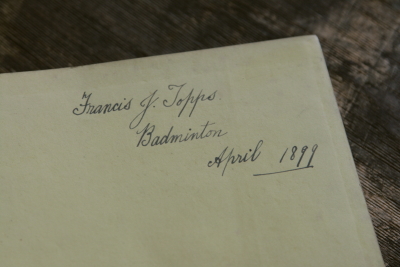 Francis J. Topps
Badminton
April 1899